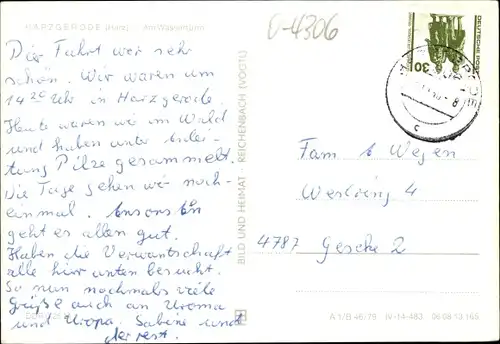 HARZGERODE (Harz) Am Wasserturm
O-4306
DEUTSCHE POST
30
Die Fahrt war sehr
schön. Wir waren um
14 20 Uhr in Harzgerode.
Heute waren wir im Wald
und haben unter Anlei-
tung Pilze gesammelt.
Die Tage gehen wir noch-
einmal. Ansonsten
geht es allen gut.
Haben die Verwantschaft
alle hier unten besucht.
So nun nochmals viele
Grüße auch an Uroma
und Uropa. Sabine und
der rest.
BILD UND HEIMAT · REICHENBACH (VOGTL)
Fam Wegen
4787 Geseke 2
A 1/B 46/79 IV-14-483 06 08 13 165